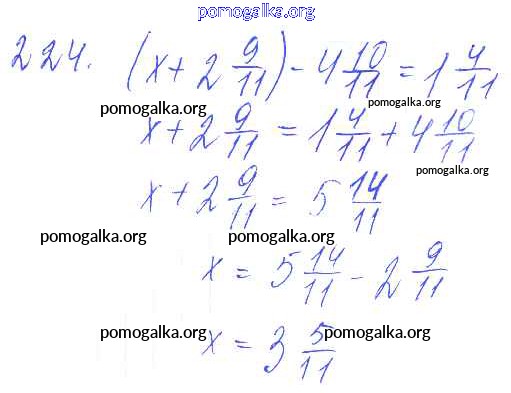 pomogalka.org
224. (x + 2 9/11) - 4 10/11 = 1 4/11
pomogalka.org pomogalka.org
x + 2 9/11 = 1 4/11 + 4 10/11
pomogalka.org
x + 2 9/11 = 5 14/11
pomogalka.org pomogalka.org
x = 5 14/11 - 2 9/11
pomogalka.org pomogalka.org
x = 3 5/11